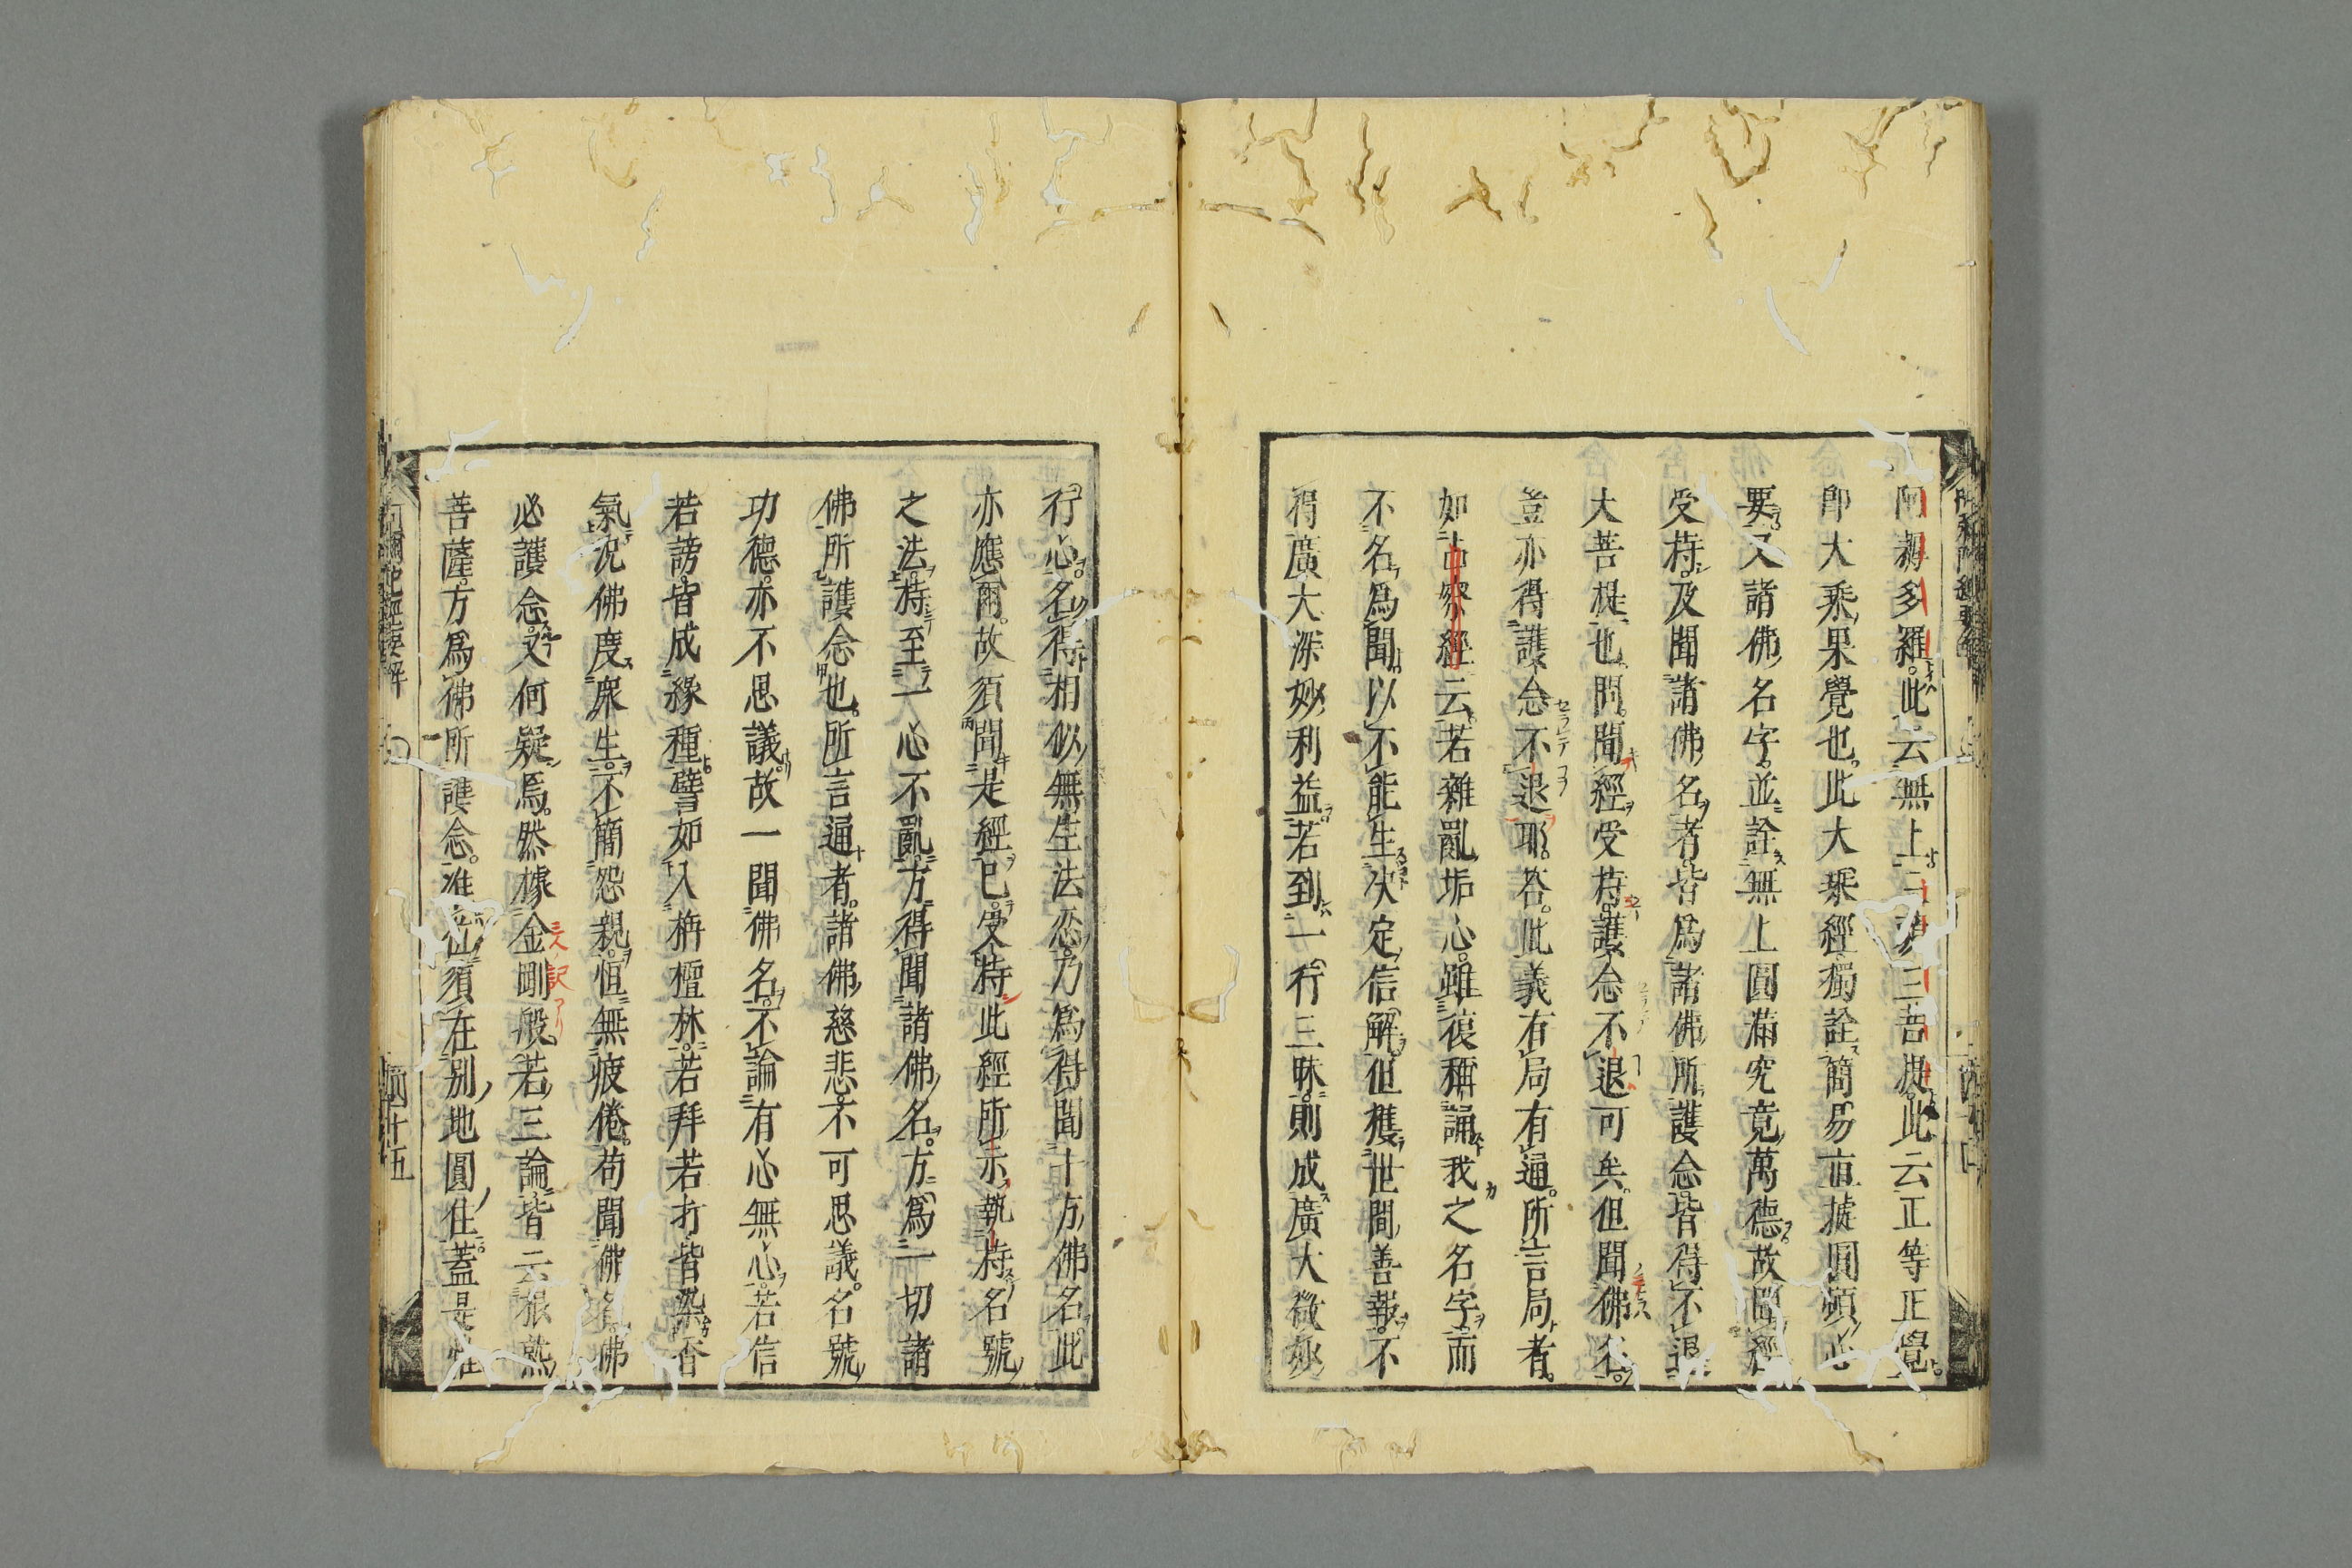 阿耨多羅此云無上三藐三菩提此云正等正覺
即大乘果覺也此大乘經獨詮簡易直捷圓頓心
要又諸佛名字並詮無上圓滿究竟萬德故聞經
受持及聞諸佛名者皆爲諸佛所護念皆得不退
大菩提也問聞經受持護念不退可矣但聞佛名
豈亦得護念不退耶答此義有局有通所言局者
如占察經云若雜亂垢心雖復稱誦我之名字而
不名爲聞以不能生決定信解但獲世間善報不
得廣大深妙利益若到一行三昧則成廣大微妙
行心名得相似無生法忍乃爲得聞十方佛名此
亦應爾故須聞是經已受持此經所示執持名號
之法持至一心不亂方得聞諸佛名方爲一切諸
佛所護念也所言通者諸佛慈悲不可思議名號
功德亦不思議故一聞佛名不論有心無心若信
若謗皆成緣種譬如入栴檀林若拜若打皆染香
氣況佛度衆生不簡怨親恒無疲倦苟聞佛名佛
必護念又何疑焉然據金剛般若三論皆云根熟
菩薩方爲佛所護念准位須在別地圓住蓋是惟
四十五
三人ノ記アリ